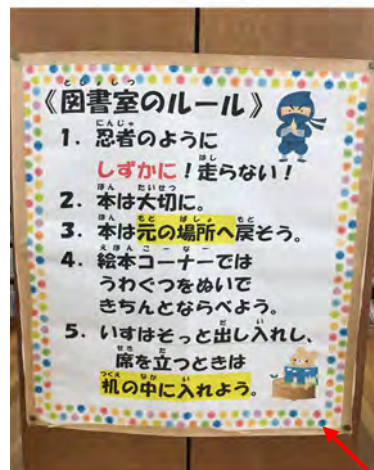 《図書室のルール》
1. 忍者のように
しずかに!走らない!
2. 本は大切に。
3. 本は元の場所へ戻そう。
4. 絵本コーナーでは
うわぐつをぬいで
きちんとならべよう。
5. いすはそっと出し入れし、
席を立つときは
机の中に入れよう。